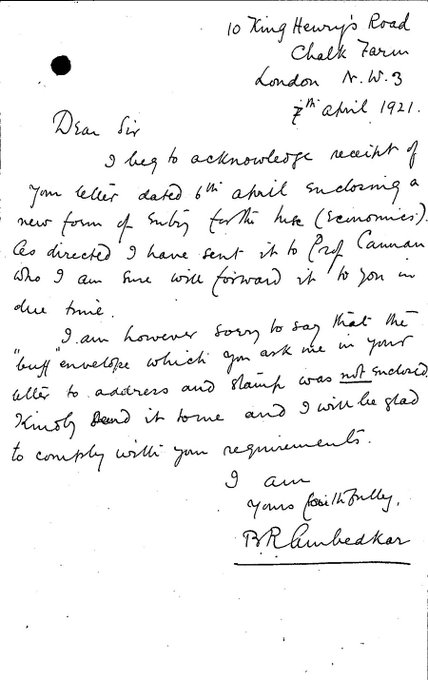 10 King Henry's Road
Chalk Farm
London N.W.3
7th April 1921.
Dear Sir
I beg to acknowledge receipt of
your letter dated 6th April enclosing a
new form of Entry for the M.Sc (Economics).
As directed I have sent it to Prof Cannan
who I am sure will forward it to you in
due time.
I am however sorry to say that the
"buff" envelope which you ask me in your
letter to address and stamp was not enclosed.
Kindly send it to me and I will be glad
to comply with your requirements.
I am
yours faithfully,
B R Ambedkar